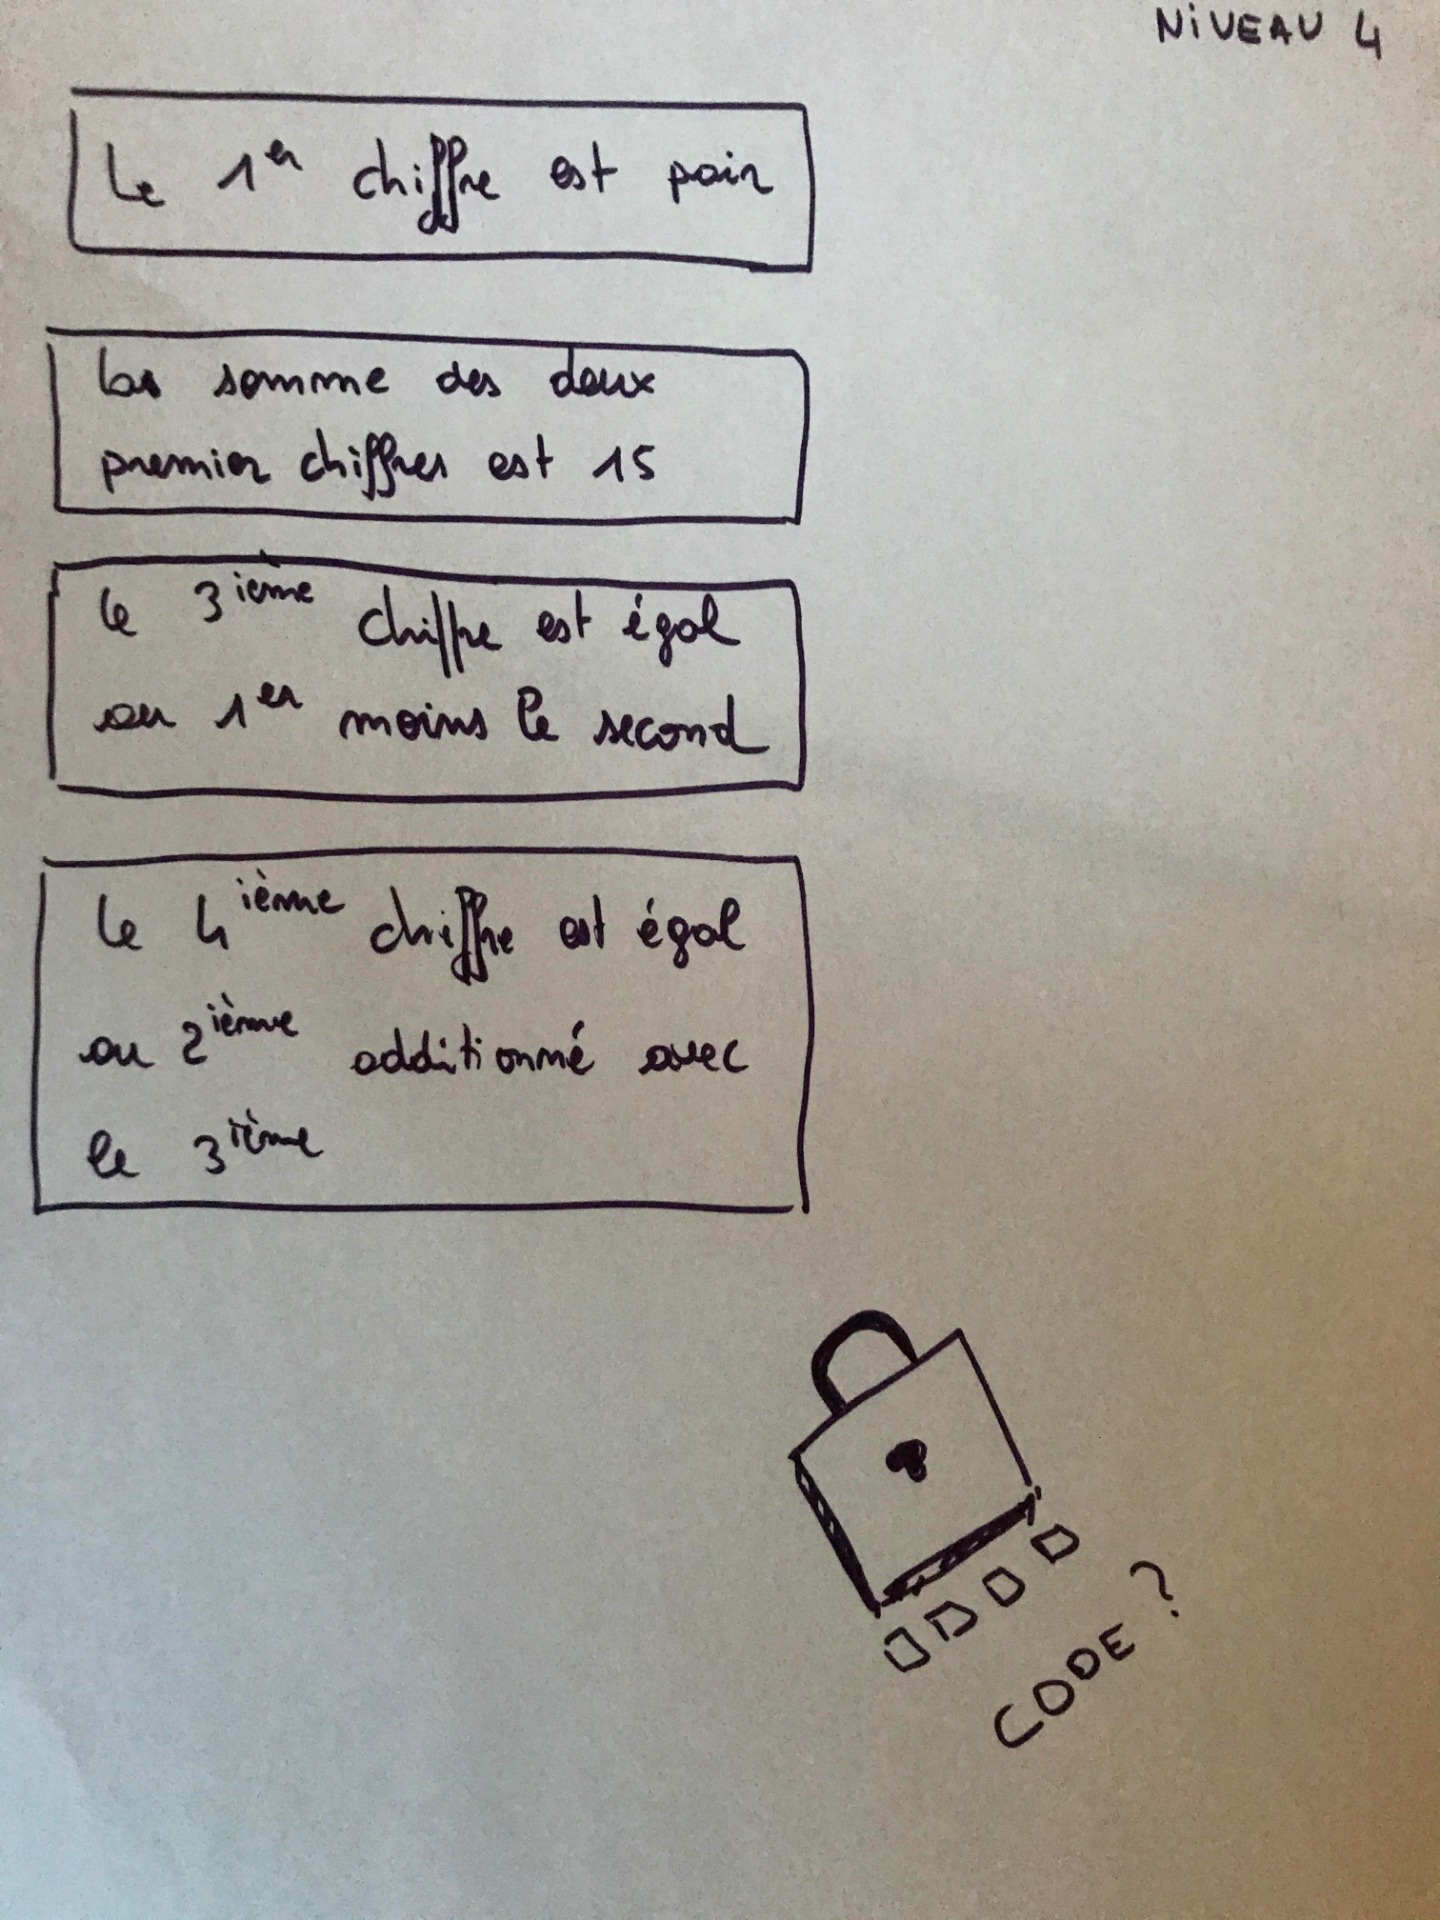 NiVEAU 4
Le 1er chiffre est pair
La somme des deux
premier chiffres est 15
le 3ième chiffre est égal
au 1er moins le second
le 4ième chiffre est égal
au 2ième additionné avec
le 3ième
CODE ?